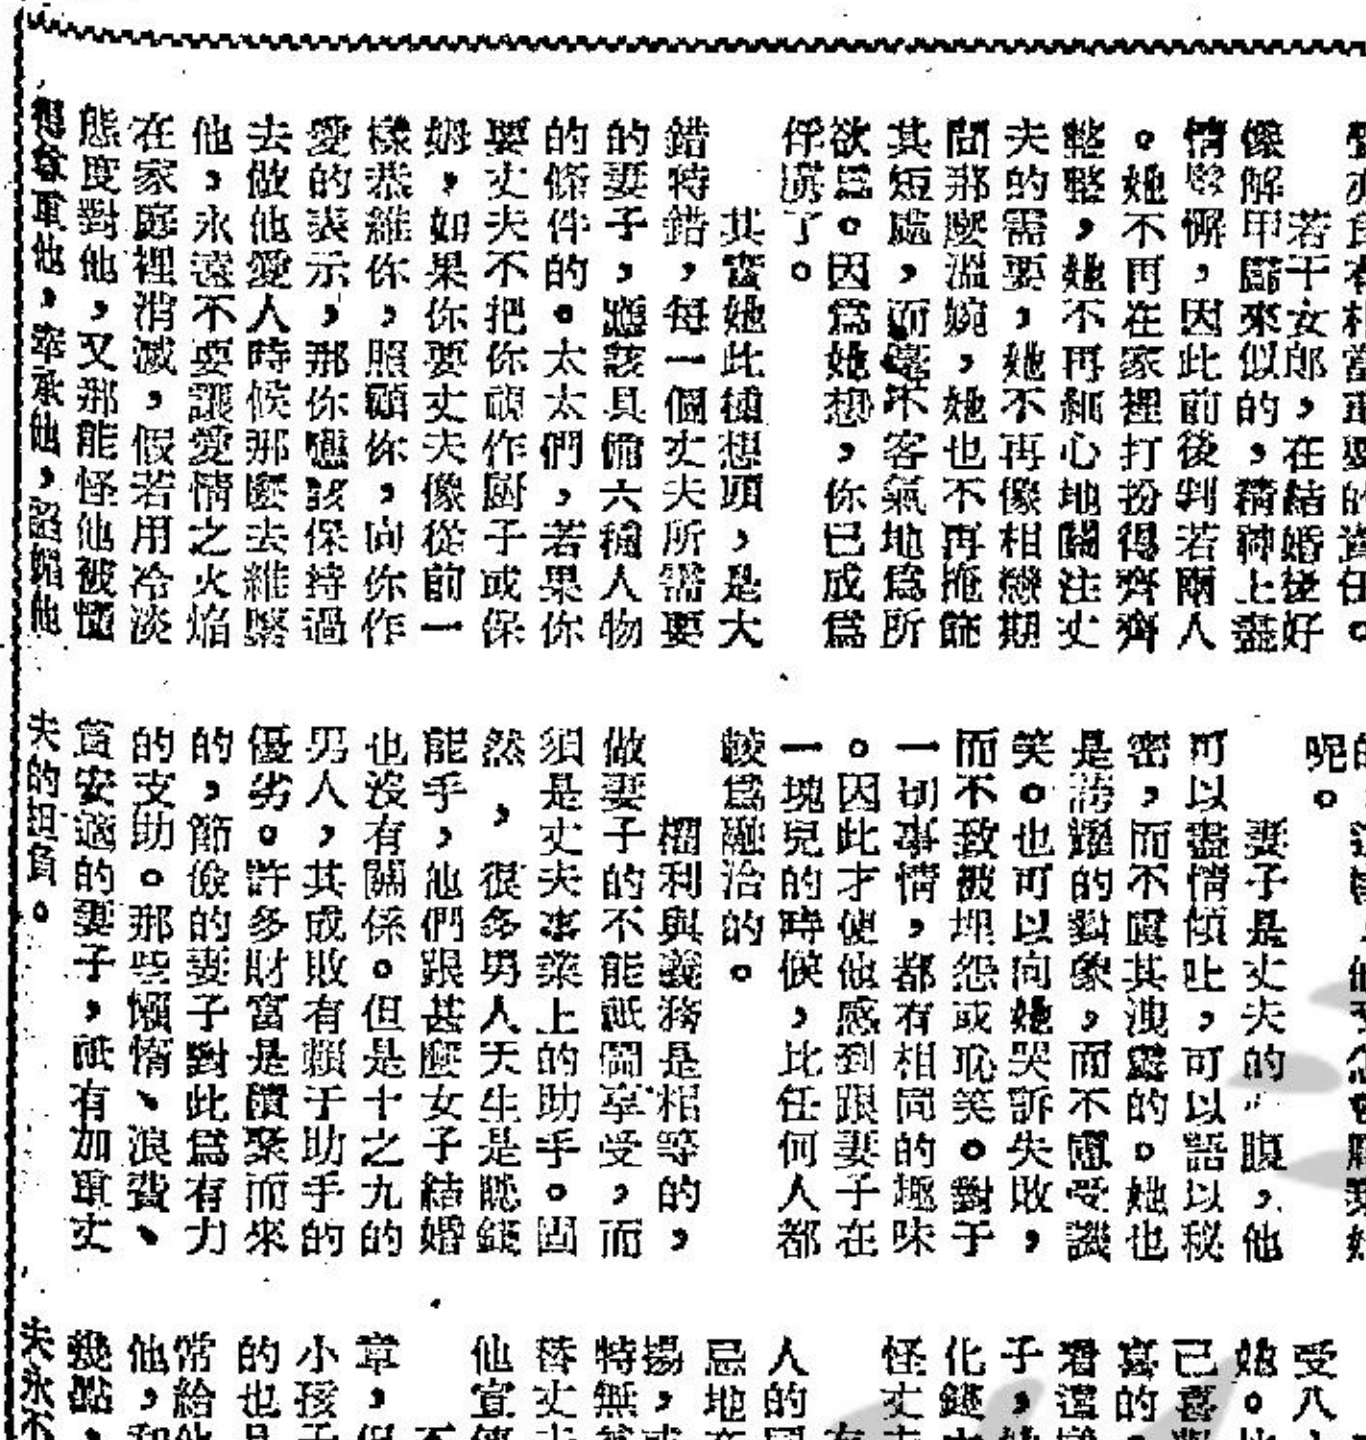 若干女郎，在結婚後好
像解甲歸來似的，精神上盡
情鬆懈，因此前後判若兩人
。她不再在家裡打扮得齊齊
整整，她不再細心地關注丈
夫的需要，她不再像相戀期
間那麼溫婉，她也不再掩飾
其短處，而毫不客氣地爲所
欲爲。因爲她想，你已成爲
俘虜了。
其實她此種想頭，是大
錯特錯，每一個丈夫所需要
的妻子，應該具備六種人物
的條件的。太太們，若果你
要丈夫不把你視作廚子或保
姆，如果你要丈夫像從前一
樣恭維你，照顧你，向你作
愛的表示，那你應該保持過
去做他愛人時候那麼去維繫
他，永遠不要讓愛情之火焰
在家庭裡消滅，假若用冷淡
態度對他，又那能怪他被懂
得尊重他，奉承他，諂媚他
呢。
妻子是丈夫的心腹，他
可以盡情傾吐，可以語以秘
密，而不虞其洩露的。她也
是誇耀的對象，而不慮受譏
笑。也可以向她哭訴失敗，
而不致被埋怨或恥笑。對于
一切事情，都有相同的趣味
。因此才使他感到跟妻子在
一塊兒的時候，比任何人都
較爲融洽的。
權利與義務是相等的，
做妻子的不能祇圖享受，而
須是丈夫事業上的助手。固
然，很多男人天生是賺錢
能手，他們跟甚麼女子結婚
也沒有關係。但是十之九的
男人，其成敗有賴于助手的
優劣。許多財富是積聚而來
的，節儉的妻子對此爲有力
的支助。那些懶惰、浪費、
貪安逸的妻子，祇有加重丈
夫的担負。
受八
她。
己喜
寫的
看還
子，
化錢
怪丈
人的
忌地
揚，
特無
替丈
他宣
章，
小孩
的也
常給
他，
幾點，
夫永不